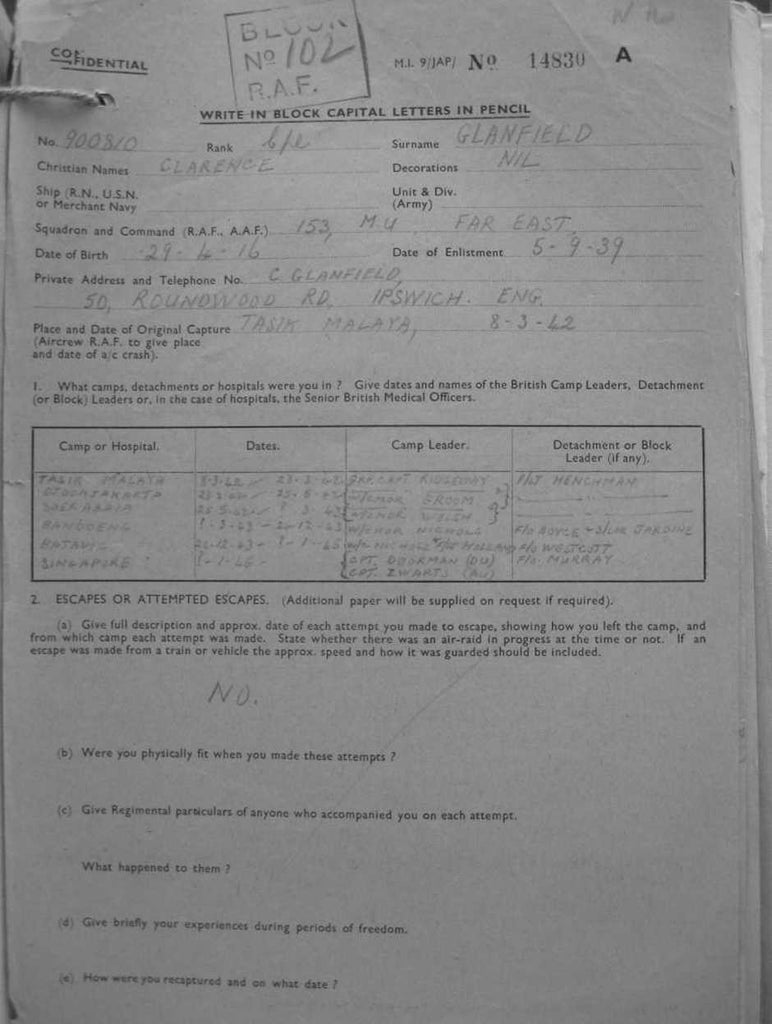 BLOCK
Nº 102
R.A.F.
CONFIDENTIAL
M.I. 9/JAP/ Nº 14830 A
WRITE IN BLOCK CAPITAL LETTERS IN PENCIL
No. 900810 Rank Surname GLANFIELD
Christian Names CLARENCE Decorations NIL
Ship (R.N., U.S.N. Unit & Div.
or Merchant Navy (Army)
Squadron and Command (R.A.F., A.A.F.) 153, M U FAR EAST,
Date of Birth 29-4-16 Date of Enlistment 5-9-39
Private Address and Telephone No. C GLANFIELD,
50, ROUNDWOOD RD, IPSWICH. ENG.
Place and Date of Original Capture TASIK MALAYA, 8-3-42
(Aircrew R.A.F. to give place
and date of a/c crash).
1. What camps, detachments or hospitals were you in ? Give dates and names of the British Camp Leaders, Detachment
(or Block) Leaders or, in the case of hospitals, the Senior British Medical Officers.
Camp or Hospital. Dates. Camp Leader. Detachment or Block
Leader (if any).
TASIK MALAYA 8-3-42 - 23-3-42 GRP. CAPT RIDGEWAY F/LT HENCHMAN
DJOCJAKARTA W/CMDR GROOM
SOERABAIA 25-5-42 - 8-3-43 W/CMDR WELSH
BANDOENG 8-3-43 - 2-12-43 W/CMDR NICHOLS F/O BOYCE + S/LDR JARDINE
BATAVIA F/O WESTCOTT
SINGAPORE 8-1-45 - CPT. DOORMAN (DU) F/O. MURRAY
CPT. ZWARTS
2. ESCAPES OR ATTEMPTED ESCAPES. (Additional paper will be supplied on request if required).
(a) Give full description and approx. date of each attempt you made to escape, showing how you left the camp, and
from which camp each attempt was made. State whether there was an air-raid in progress at the time or not. If an
escape was made from a train or vehicle the approx. speed and how it was guarded should be included.
NO.
(b) Were you physically fit when you made these attempts ?
(c) Give Regimental particulars of anyone who accompanied you on each attempt.
What happened to them ?
(d) Give briefly your experiences during periods of freedom.
(e) How were you recaptured and on what date ?